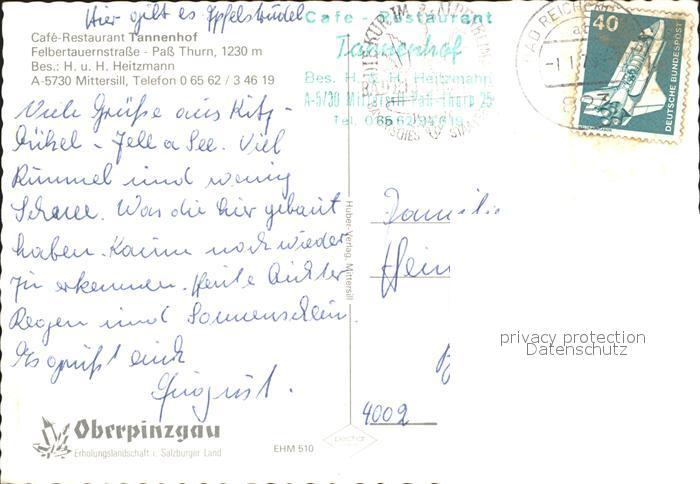 Hier gibt es Apfelstrudel
Café-Restaurant Tannenhof
Felbertauernstraße - Paß Thurn, 1230 m
Bes.: H. u. H. Heitzmann
A-5730 Mittersill, Telefon 0 65 62 / 3 46 19
Cafe - Restaurant
Tannenhof
Bes. H. u. H. Heitzmann
A-5730 Mittersill Paß-Thurn 25
Tel. 0 65 62/84619
BAD REICHENH
40
DEUTSCHE BUNDESPOST
Viele Grüße aus Kitz-
bühel - Zell a See. Viel
Rummel und wenig
Schnee. Was die hier gebaut
haben. Kaum noch wieder
zu erkennen. Heute
Regen und Sonnenschein
Es grüßt euch
Huber-Verlag, Mittersill
Familie
Hein
4002
Oberpinzgau
Erholungslandschaft i. Salzburger Land
EHM 510
pechar
privacy protection
Datenschutz